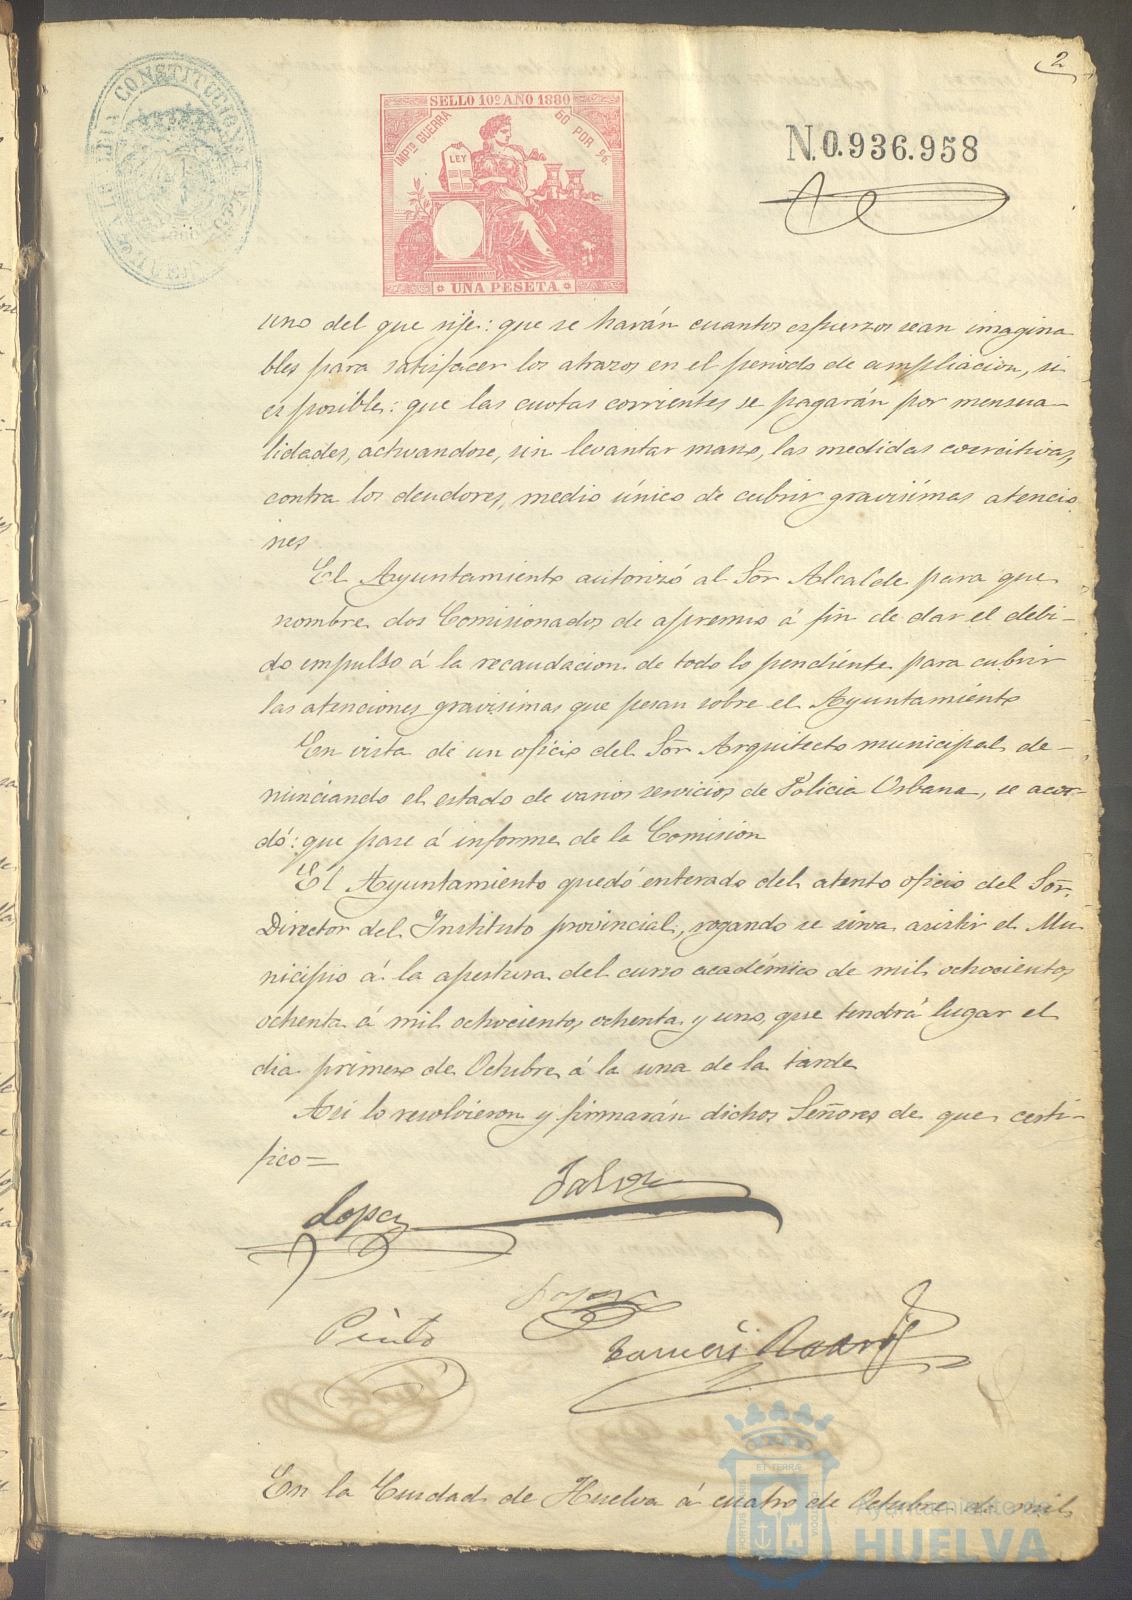 2
ALCALDIA CONSTITUCIONAL DE HUELVA
SELLO 10º AÑO 1880
IMPTO GUERRA 50 POR %.
LEY
UNA PESETA
N.0.936.958
uno del que rije: que se harán cuantos esfuerzos sean imagina
bles para satisfacer los atrazos en el periodo de ampliacion, si
es posible: que las cuotas corrientes se pagarán por mensua-
lidades, activandose, sin levantar mano, las medidas coercitivas,
contra los deudores, medio único de cubrir gravisímas atencio
nes
El Ayuntamiento autorizó al Sor Alcalde para que
nombre dos Comisionados de apremio á fin de dar el debi-
do impulso á la recaudacion de todo lo pendiente para cubrir
las atenciones gravisimas que pesan sobre el Ayuntamiento
En vista de un oficio del Sor Arquitecto municipal de-
nunciando el estado de varios servicios de Policia Urbana, se acor-
dó: que pase á informe de la Comision
El Ayuntamiento quedó enterado del atento oficio del Sor.
Director del Instituto provincial, rogando se sirva asistir el Mu
nicipio á la apertura del curso académico de mil ochocientos
ochenta á mil ochocientos ochenta y uno, que tendrá lugar el
dia primero de Octubre á la una de la tarde
Asi lo resolvieron y firmarán dichos Señores de que certi-
fico=
Lopez
Pinto
En la Ciudad de Huelva á cuatro de Octubre de mil
Ayuntamiento de
HUELVA